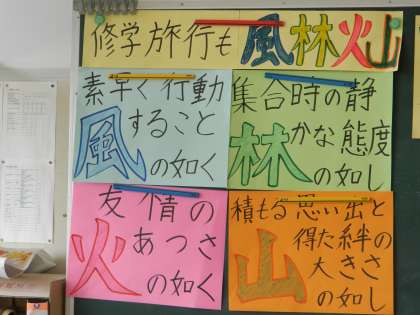 修学旅行も風林火山
素早く行動
すること
風の如く
集合時の静
かな態度
林の如し
友情の
あつさ
火の如く
積もる思い出と
得た絆の
大きさ
山の如し